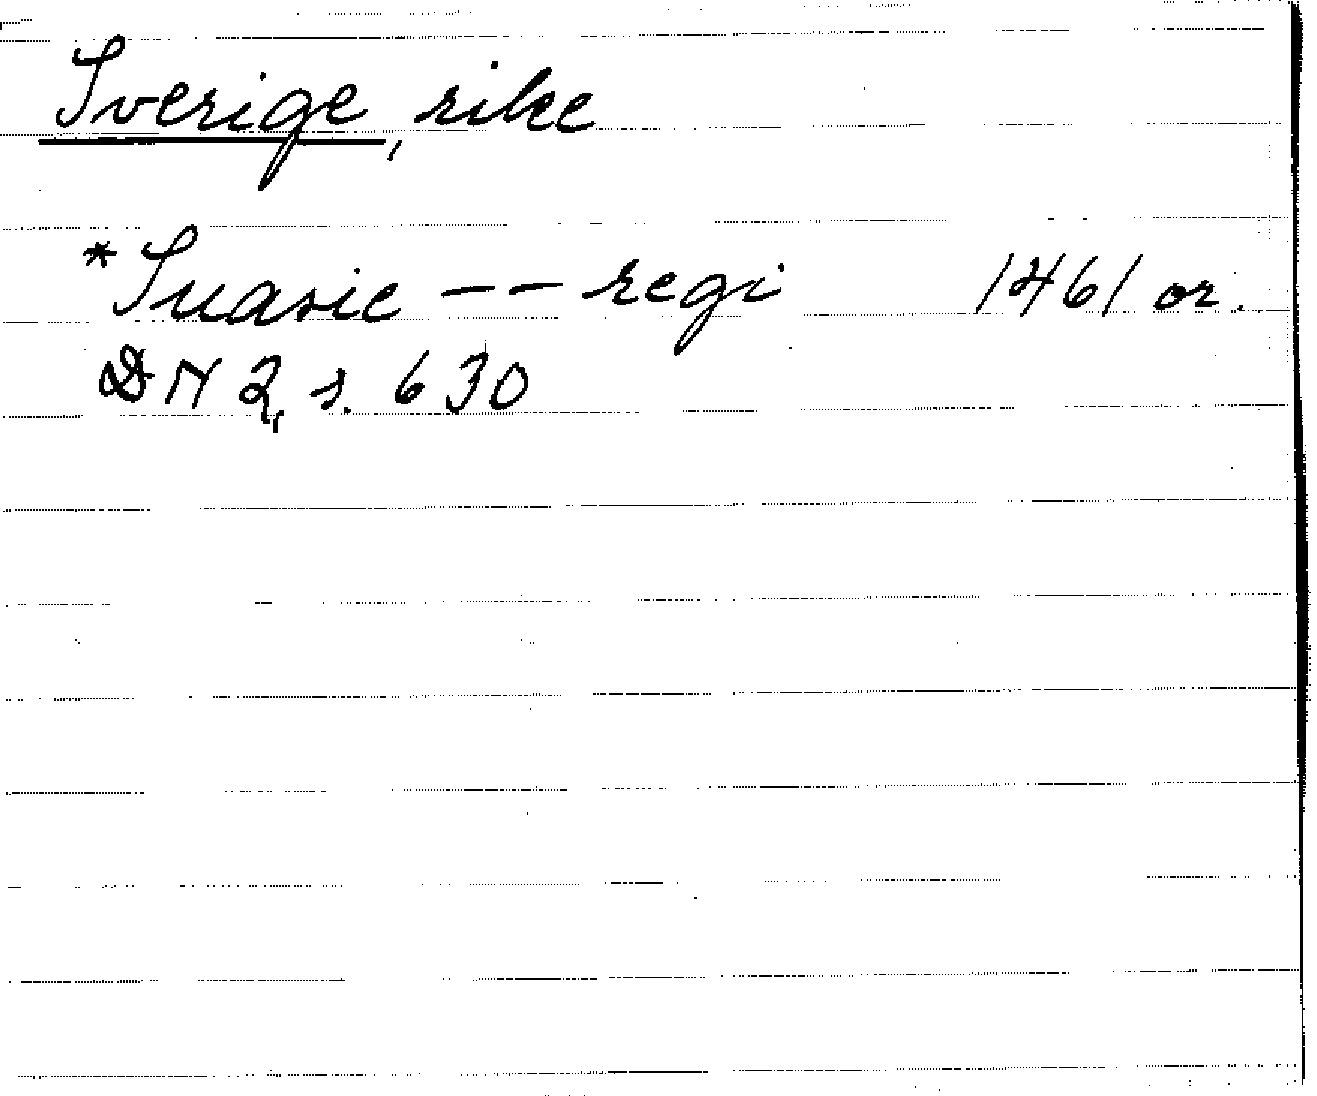 Sverige, rike
*Suasie -- regi 1461 or.
DN 2, s. 630